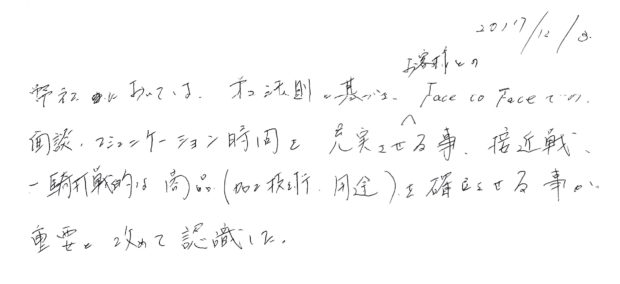 2017/12/8.
お客様との
弊社においては、オ二法則に基づき、Face to Faceでの、
面談、コミュニケーション時間を充実させる事、接近戦、
一騎打戦的な商品(加工技術、用途)を確立させる事が
重要と改めて認識した。